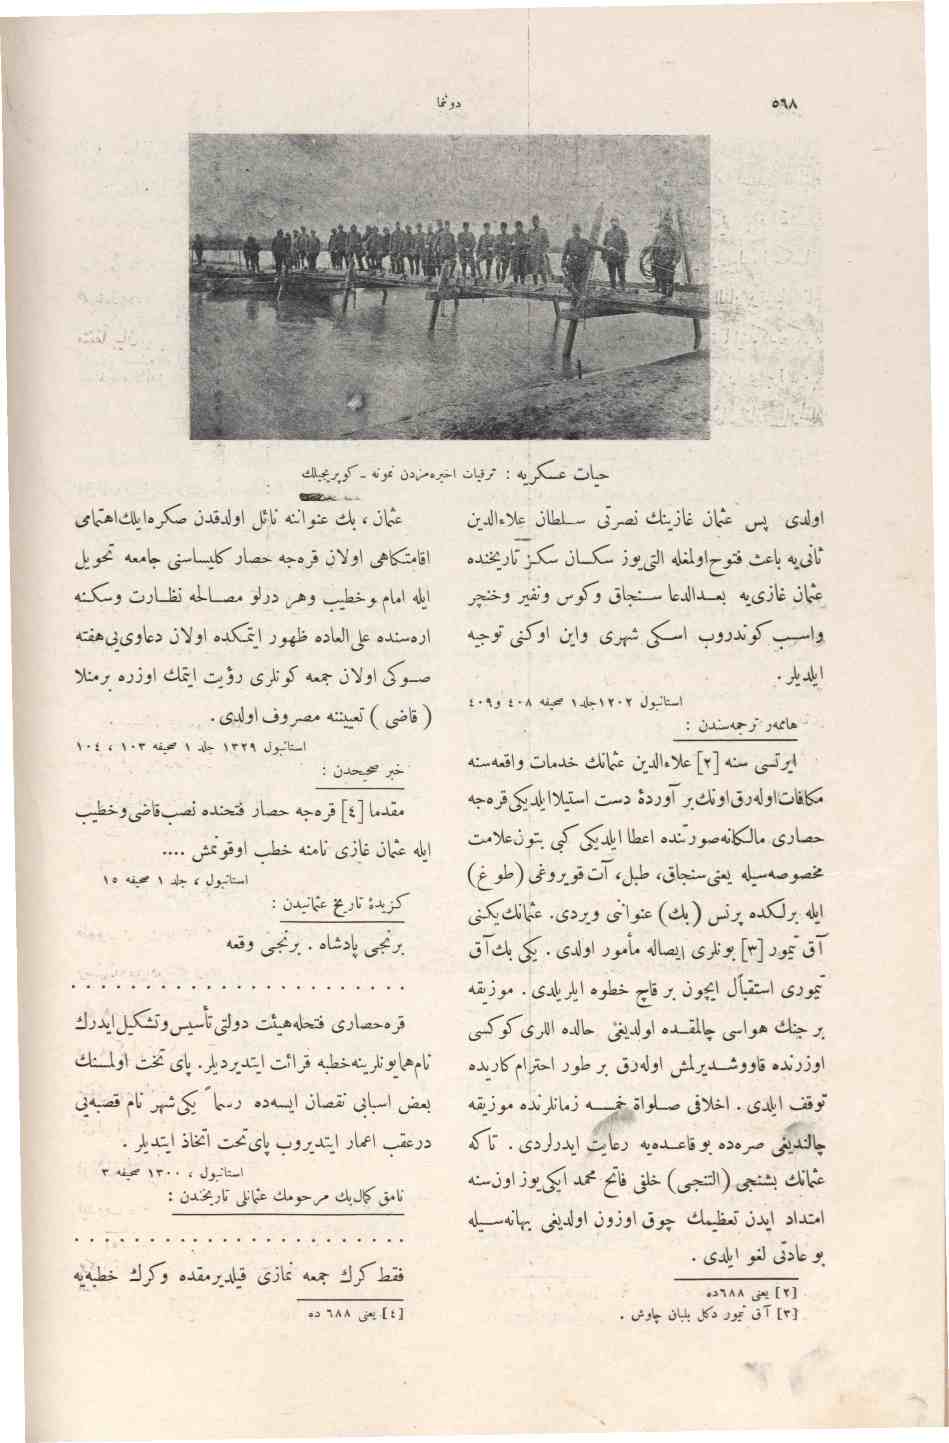 ٥٦٨
دوننما
حیات عسکریه : ترقیات اخیره‌مزدن نمونه ـ کوپریجیلك
اولدی پس عثمان غازینك نصرتی سلطان علاءالدین
ثانی‌یه باعث فتوح اولمغله التی‌یوز سکسان سکز تاریخنده
عثمان غازی‌یه بعدالدعا سنجاق وکوس ونفیر وخنجر
واسب کوندروب اسکی شهری واین اوکنی توجیه
ایلدیلر .
استانبول ١٢٠٢ جلد ١ صحیفه ٤٠٨ و ٤٠٩
هاممه‌ر ترجمه‌سندن :
ایرتسی سنه [٢] علاءالدین عثمانك خدمات واقعه‌سنه
مکافات اوله‌رق اونك بر آوردهٔ دست استیلا ایلدیکی قره‌جه
حصاری مالکانه صورتنده اعطا ایلدیکی کبی بتون علامت
مخصوصه‌سیله یعنی سنجاق، طبل، آت قویروغی (طوغ)
ایله برلکده پرنس (بك) عنوانی ویردی. عثمانك یکنی
آق تیمور [٣] بونلری ایصاله مأمور اولدی . یکی بك آق
تیموری استقبال ایچون بر قاچ خطوه ایلریلدی . موزیقه
بر جنك هواسی چالمقده اولدیغی حالده اللری کوکسی
اوزرنده قاووشدیرلمش اوله‌رق بر طور احترام کاریده
توقف ایلدی . اخلافی صلواة خمسه زمانلرنده موزیقه
چالندیغی صره‌ده بو قاعده‌یه رعایت ایدرلردی . تا که
عثمانك بشنجی (التنجی) خلفی فاتح محمد ایکی یوز اون سنه
امتداد ایدن تعظیمك چوق اوزون اولدیغی بهانه‌سیله
بو عادتی لغو ایلدی .
[٢] یعنی ٦٨٨ ده
[٣] آق تیمور دکل بلبان چاوش .
عثمان ، بك عنواننه نائل اولدقدن صکره ایلك اهتمامی
اقامتکاهی اولان قره‌جه حصار کلیساسنی جامعه تحویل
ایله امام وخطیب وهر درلو مصالحه نظارت وسکنه
اره‌سنده علی‌العاده ظهور ایتمکده اولان دعاوی‌یی هفته
صوکی اولان جمعه کونلری رؤیت ایتمك اوزره برمنلا
( قاضی ) تعییننه مصروف اولدی .
استانبول ١٣٢٩ جلد ١ صحیفه ١٠٣ ، ١٠٤
خبر صحیحدن :
مقدما [٤] قره‌جه حصار فتحنده نصب قاضی وخطیب
ایله عثمان غازی نامنه خطب اوقونمش ....
استانبول ، جلد ١ صحیفه ١٥
کزیدهٔ تاریخ عثمانیدن :
برنجی پادشاه . برنجی وقعه
. . . . . . . . . . . . . . . . . . . . .
قره‌حصاری فتحله هیئت دولتی تأسیس وتشکیل ایدرك
نام همایونلرینه خطبه قرائت ایتدیردیلر. پای تخت اولمسنك
بعض اسبابی نقصان ایسه‌ده رسماً یکی شهر نام قصبه‌یی
درعقب اعمار ایتدیروب پای تحت اتخاذ ایتدیلر .
استانبول ، ١٣٠٠ صحیفه ٣
نامق کمال بك مرحومك عثمانلی تاریخندن :
. . . . . . . . . . . . . . . . . . . . .
فقط كرك جمعه نمازی قیلدیرمقده وكرك خطبه‌یه
[٤] یعنی ٦٨٨ ده